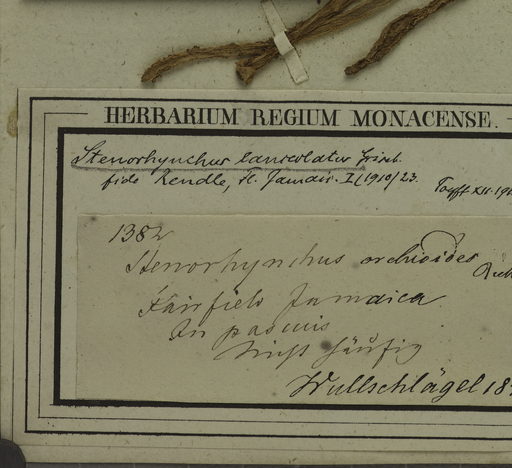 HERBARIUM REGIUM MONACENSE.
Stenorhynchus lanceolatus Griseb.
fide Rendle, Fl. Jamaic. I (1910) 23.
XII.
1382
Stenorhynchus orchioides Rich
Fairfield Jamaica
In pascuis
nicht häufig
Wullschlägel 18